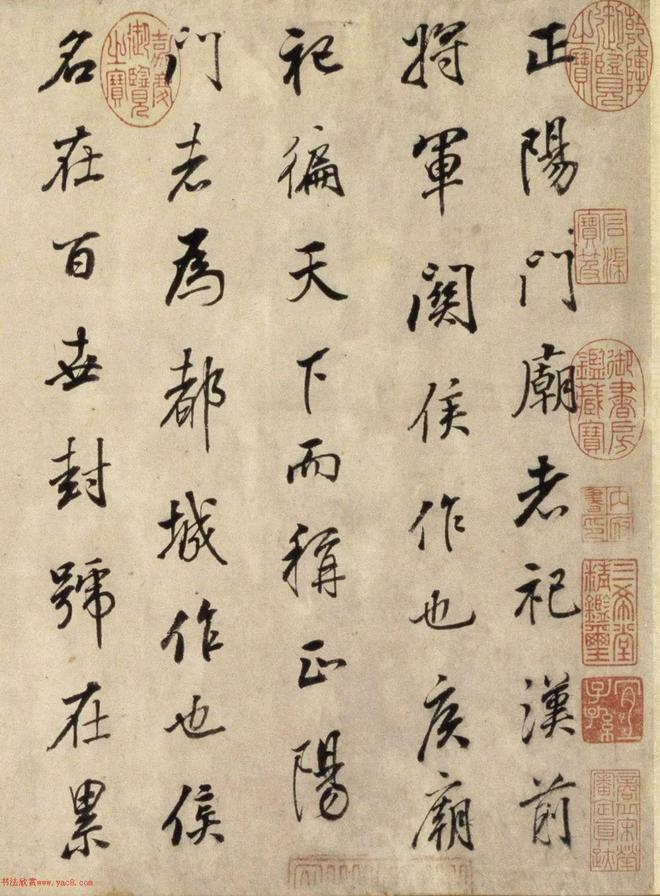 正陽門廟者祀漢前
將軍關侯作也侯廟
祀徧天下而稱正陽
門者為都城作也侯
名在百世封號在累
乾隆御覽之寶
石渠寶笈
御書房鑑藏寶
三希堂精鑑璽
宜子孫
嘉慶御覽之寶
书法欣赏www.yac8.com